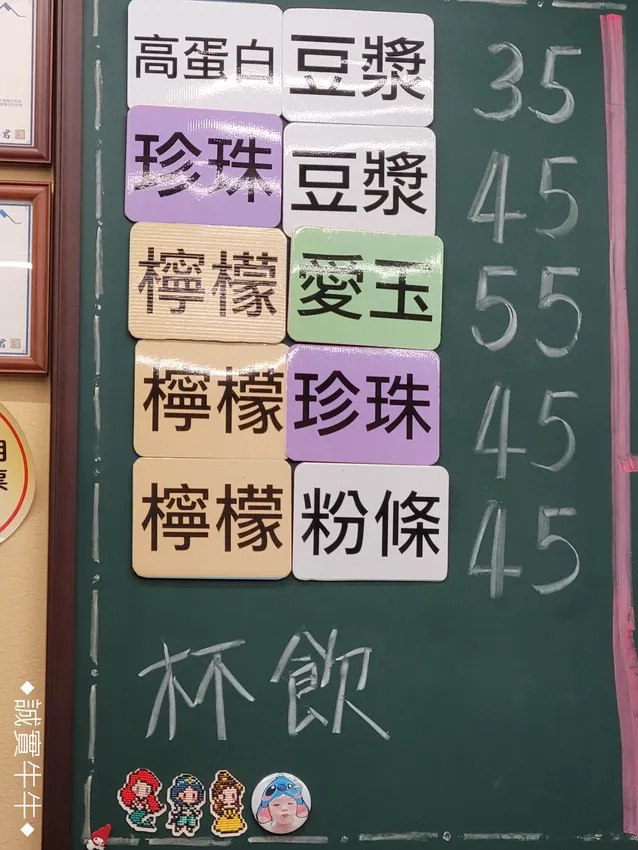 高蛋白 豆漿 35
珍珠 豆漿 45
檸檬 愛玉 55
檸檬 珍珠 45
檸檬 粉條 45
杯飲
君
君
◆誠實牛牛◆